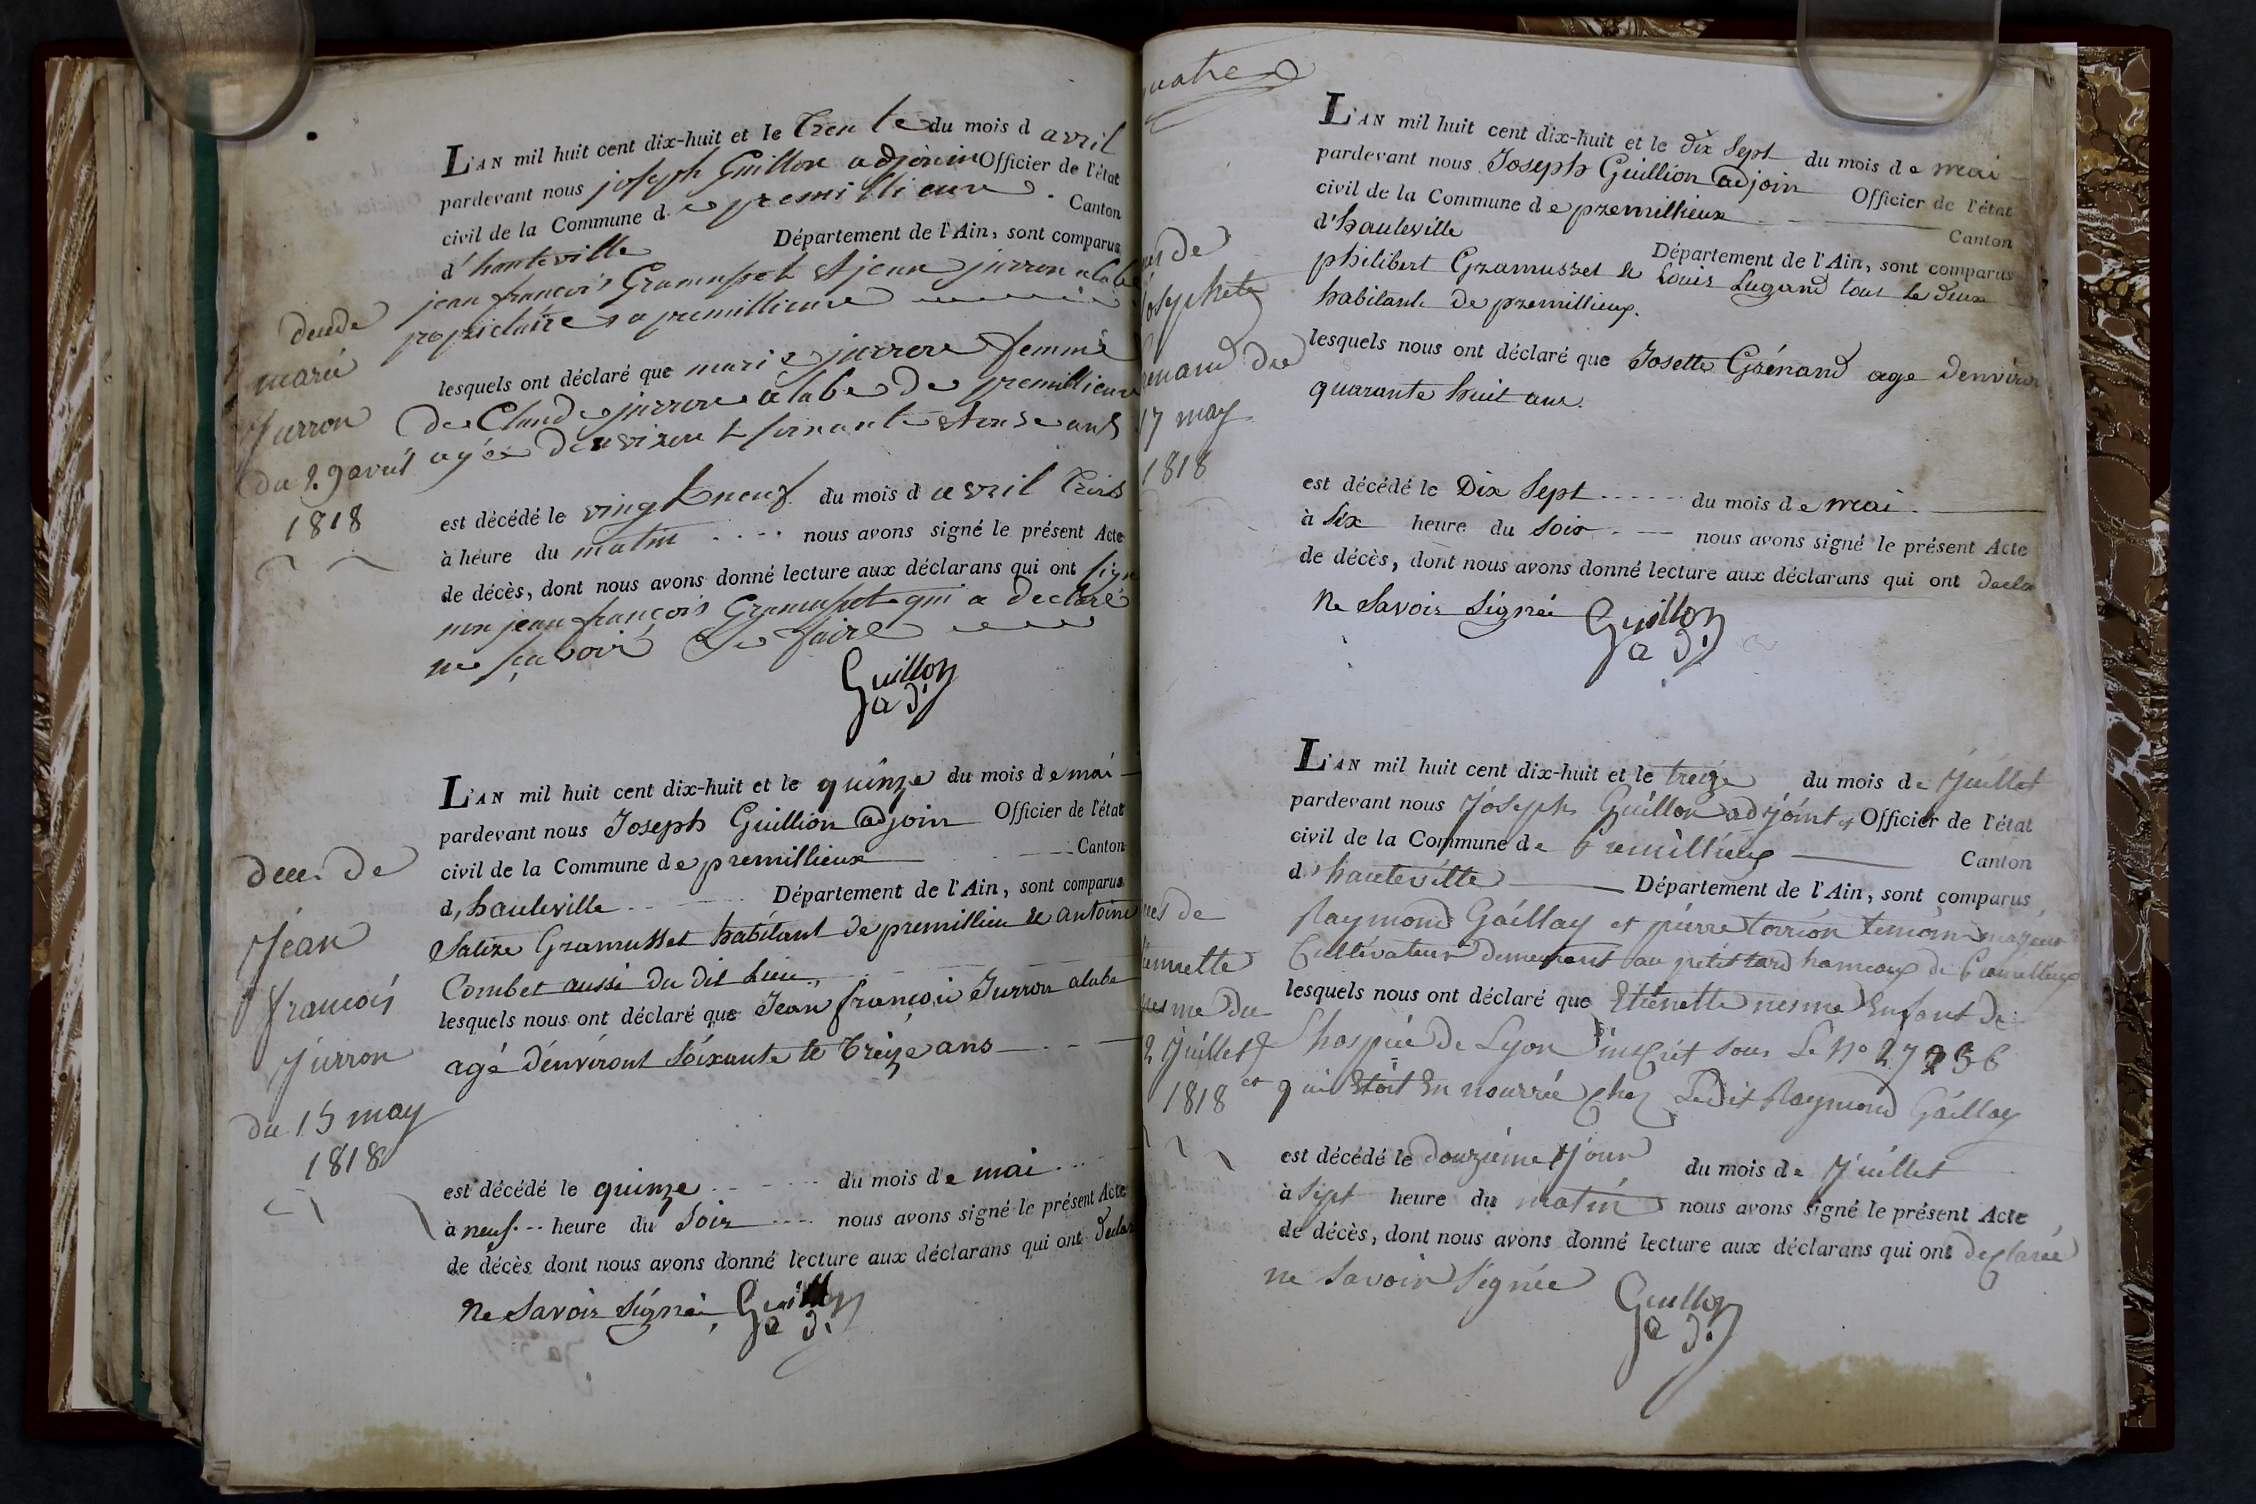 L'AN mil huit cent dix-huit et le trente du mois d avril
pardevant nous joseph Guillon adjoin Officier de l'état
civil de la Commune d. e premillieux. Canton
d'hauteville Département de l'Ain, sont comparus
jean françois Gramusset et jean jurron alabe
propriétaire a premillieux
lesquels ont déclaré que marie jurron femme
de Claude jurron alabe de premillieux
agée denviront soixante et onse ans
est décédé le vingt neuf du mois d avril trois
à heure du matin nous avons signé le présent Acte
de décès, dont nous avons donné lecture aux déclarans qui ont signé
non jean françois Gramusset qui a déclaré
ne sçavoir Le faire
Guillon
adj
marie
Jurron
du 29 avril
1818
L'AN mil huit cent dix-huit et le quinze du mois de mai
pardevant nous Joseph Guillion adjoin Officier de l'état
civil de la Commune de premillieux Canton
d, hauteville Département de l'Ain, sont comparus
Gramusset habitant de premillieu et antoine
Combet aussi du dit Lieu
lesquels nous ont déclaré que Jean françois Jurron alabe
agé d'environt soixante et treize ans
est décédé le quinze du mois de mai
à neuf heure du soir nous avons signé le présent Acte
de décès dont nous avons donné lecture aux déclarans qui ont déclar
Ne Savoir Signée Guillon
adj
Déce. De
Jean
francois
Jurron
du 15 may
1818
uatre
L'AN mil huit cent dix-huit et le dix sept du mois de mai
pardevant nous Joseph Guillion adjoin Officier de l'état
civil de la Commune de premillieux Canton
d'hauteville Département de l'Ain, sont comparus
philibert Gramusset et Louis Lugand tout le deux
habitant de premillieux.
lesquels nous ont déclaré que Josette Grénand age denviron
quarante huit ans.
est décédé le Dix Sept du mois de mai
à Six heure du Soir nous avons signé le présent Acte
de décès, dont nous avons donné lecture aux déclarans qui ont décla
Ne Savoir Signée Guillon
adj
de
osephete
enand du
17 may
1818
L'AN mil huit cent dix-huit et le treize du mois de Juillet
pardevant nous Joseph Guillon adjoint Officier de l'état
civil de la Commune de Premillieux Canton
d'hauteville Département de l'Ain, sont comparus
Raymond Gaillay et pierre torrion temoin majeur
Cultivateur demeurant au petit tard hameaux de Premillieux
lesquels nous ont déclaré que Etienette nesme Enfant de
Lhospice de Lyon inscrit sous Le No
et qui Etoit En nourrice Chez Ledit Raymond Gaillay
est décédé le douzième Jour du mois de Juillet
à Sept heure du matin nous avons signé le présent Acte
de décès, dont nous avons donné lecture aux déclarans qui ont déclarée
ne savoir signée Guillon
adj
de
iennette
esme du
2 Juillet
1818